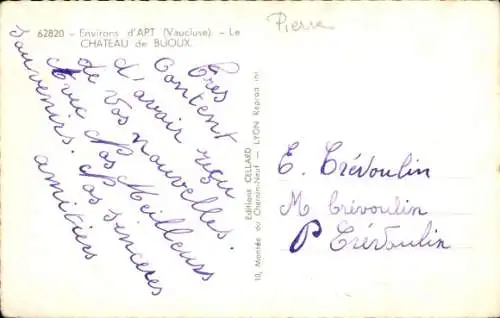 62820 - Environs d'APT (Vaucluse). - Le
CHATEAU de BUOUX.
Pierre
Très
Content
d'avoir reçu
de vos nouvelles.
Avec Nos Meilleurs
souvenirs. Nos sinceres
amitiers
Editions CELLARD
10, Montée du Chemin-Neuf - LYON Reprod. int.
E. Trévoulin
M Crévoulin
P Trévoulin